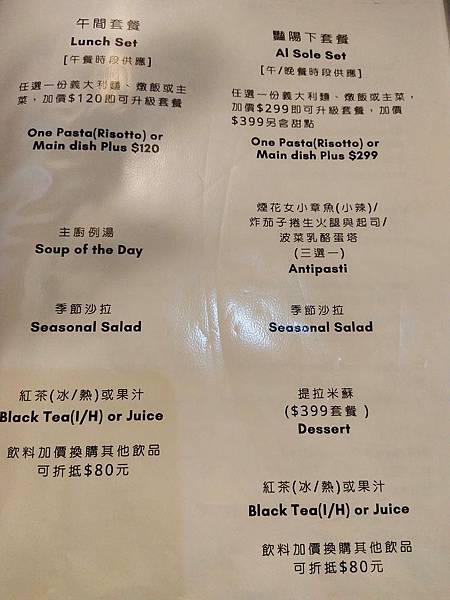 午間套餐
Lunch Set
[午餐時段供應]
任選一份義大利麵、燉飯或主
菜，加價$120即可升級套餐
One Pasta(Risotto) or
Main dish Plus $120
主廚例湯
Soup of the Day
季節沙拉
Seasonal Salad
紅茶(冰/熱)或果汁
Black Tea(I/H) or Juice
飲料加價換購其他飲品
可折抵$80元
豔陽下套餐
Al Sole Set
[午/晚餐時段供應]
任選一份義大利麵、燉飯或主菜，
加價$299即可升級套餐，加價
$399另含甜點
One Pasta(Risotto) or
Main dish Plus $299
煙花女小章魚(小辣)/
炸茄子捲生火腿與起司/
波菜乳酪蛋塔
(三選一)
Antipasti
季節沙拉
Seasonal Salad
提拉米蘇
($399套餐 )
Dessert
紅茶(冰/熱)或果汁
Black Tea(I/H) or Juice
飲料加價換購其他飲品
可折抵$80元